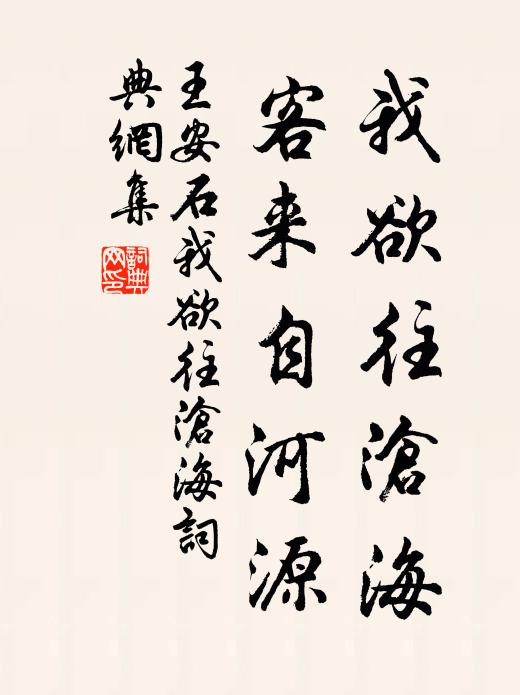 我欲往滄海
客来自河源
王安石我欲往滄海詞
典網集
詞典
网印